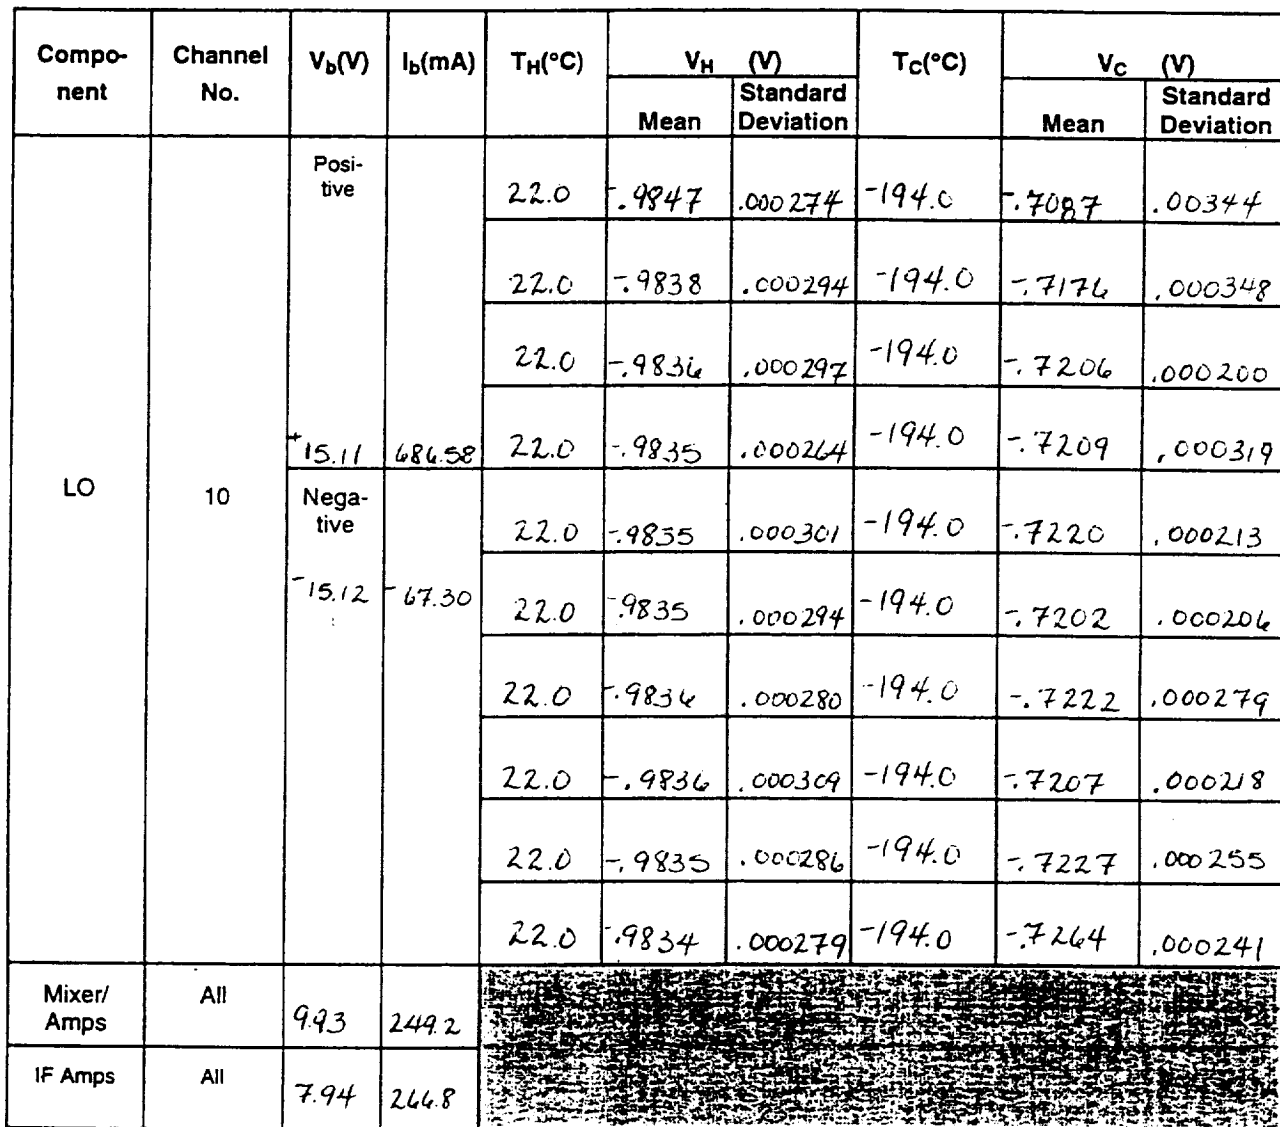 Compo-nent Channel No. Vb(V) Ib(mA) TH(°C) VH (V) TC(°C) VC (V)
Mean Standard Deviation Mean Standard Deviation
Posi-tive 22.0 -.9847 .000274 -194.0 -.7087 .00344
22.0 -.9838 .000294 -194.0 -.7176 .000348
22.0 -.9836 .000297 -194.0 -.7206 .000200
+15.11 686.58 22.0 -.9835 .000264 -194.0 -.7209 .000319
LO 10 Nega-tive 22.0 -.9835 .000301 -194.0 -.7220 .000213
-15.12 -67.30 22.0 -.9835 .000294 -194.0 -.7202 .000206
22.0 -.9836 .000280 -194.0 -.7222 .000279
22.0 -.9836 .000309 -194.0 -.7207 .000218
22.0 -.9835 .000286 -194.0 -.7227 .000255
22.0 -.9834 .000279 -194.0 -.7264 .000241
Mixer/ Amps All 9.93 249.2
IF Amps All 7.94 266.8